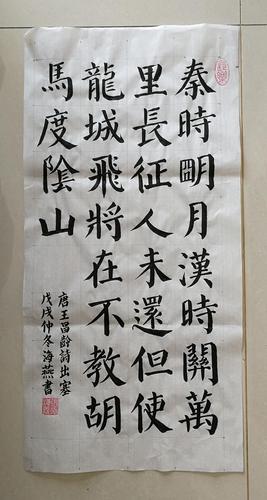 秦時明月漢時關萬
里長征人未還但使
龍城飛將在不教胡
馬度陰山
唐王昌齡詩出塞
戊戌仲冬海燕書